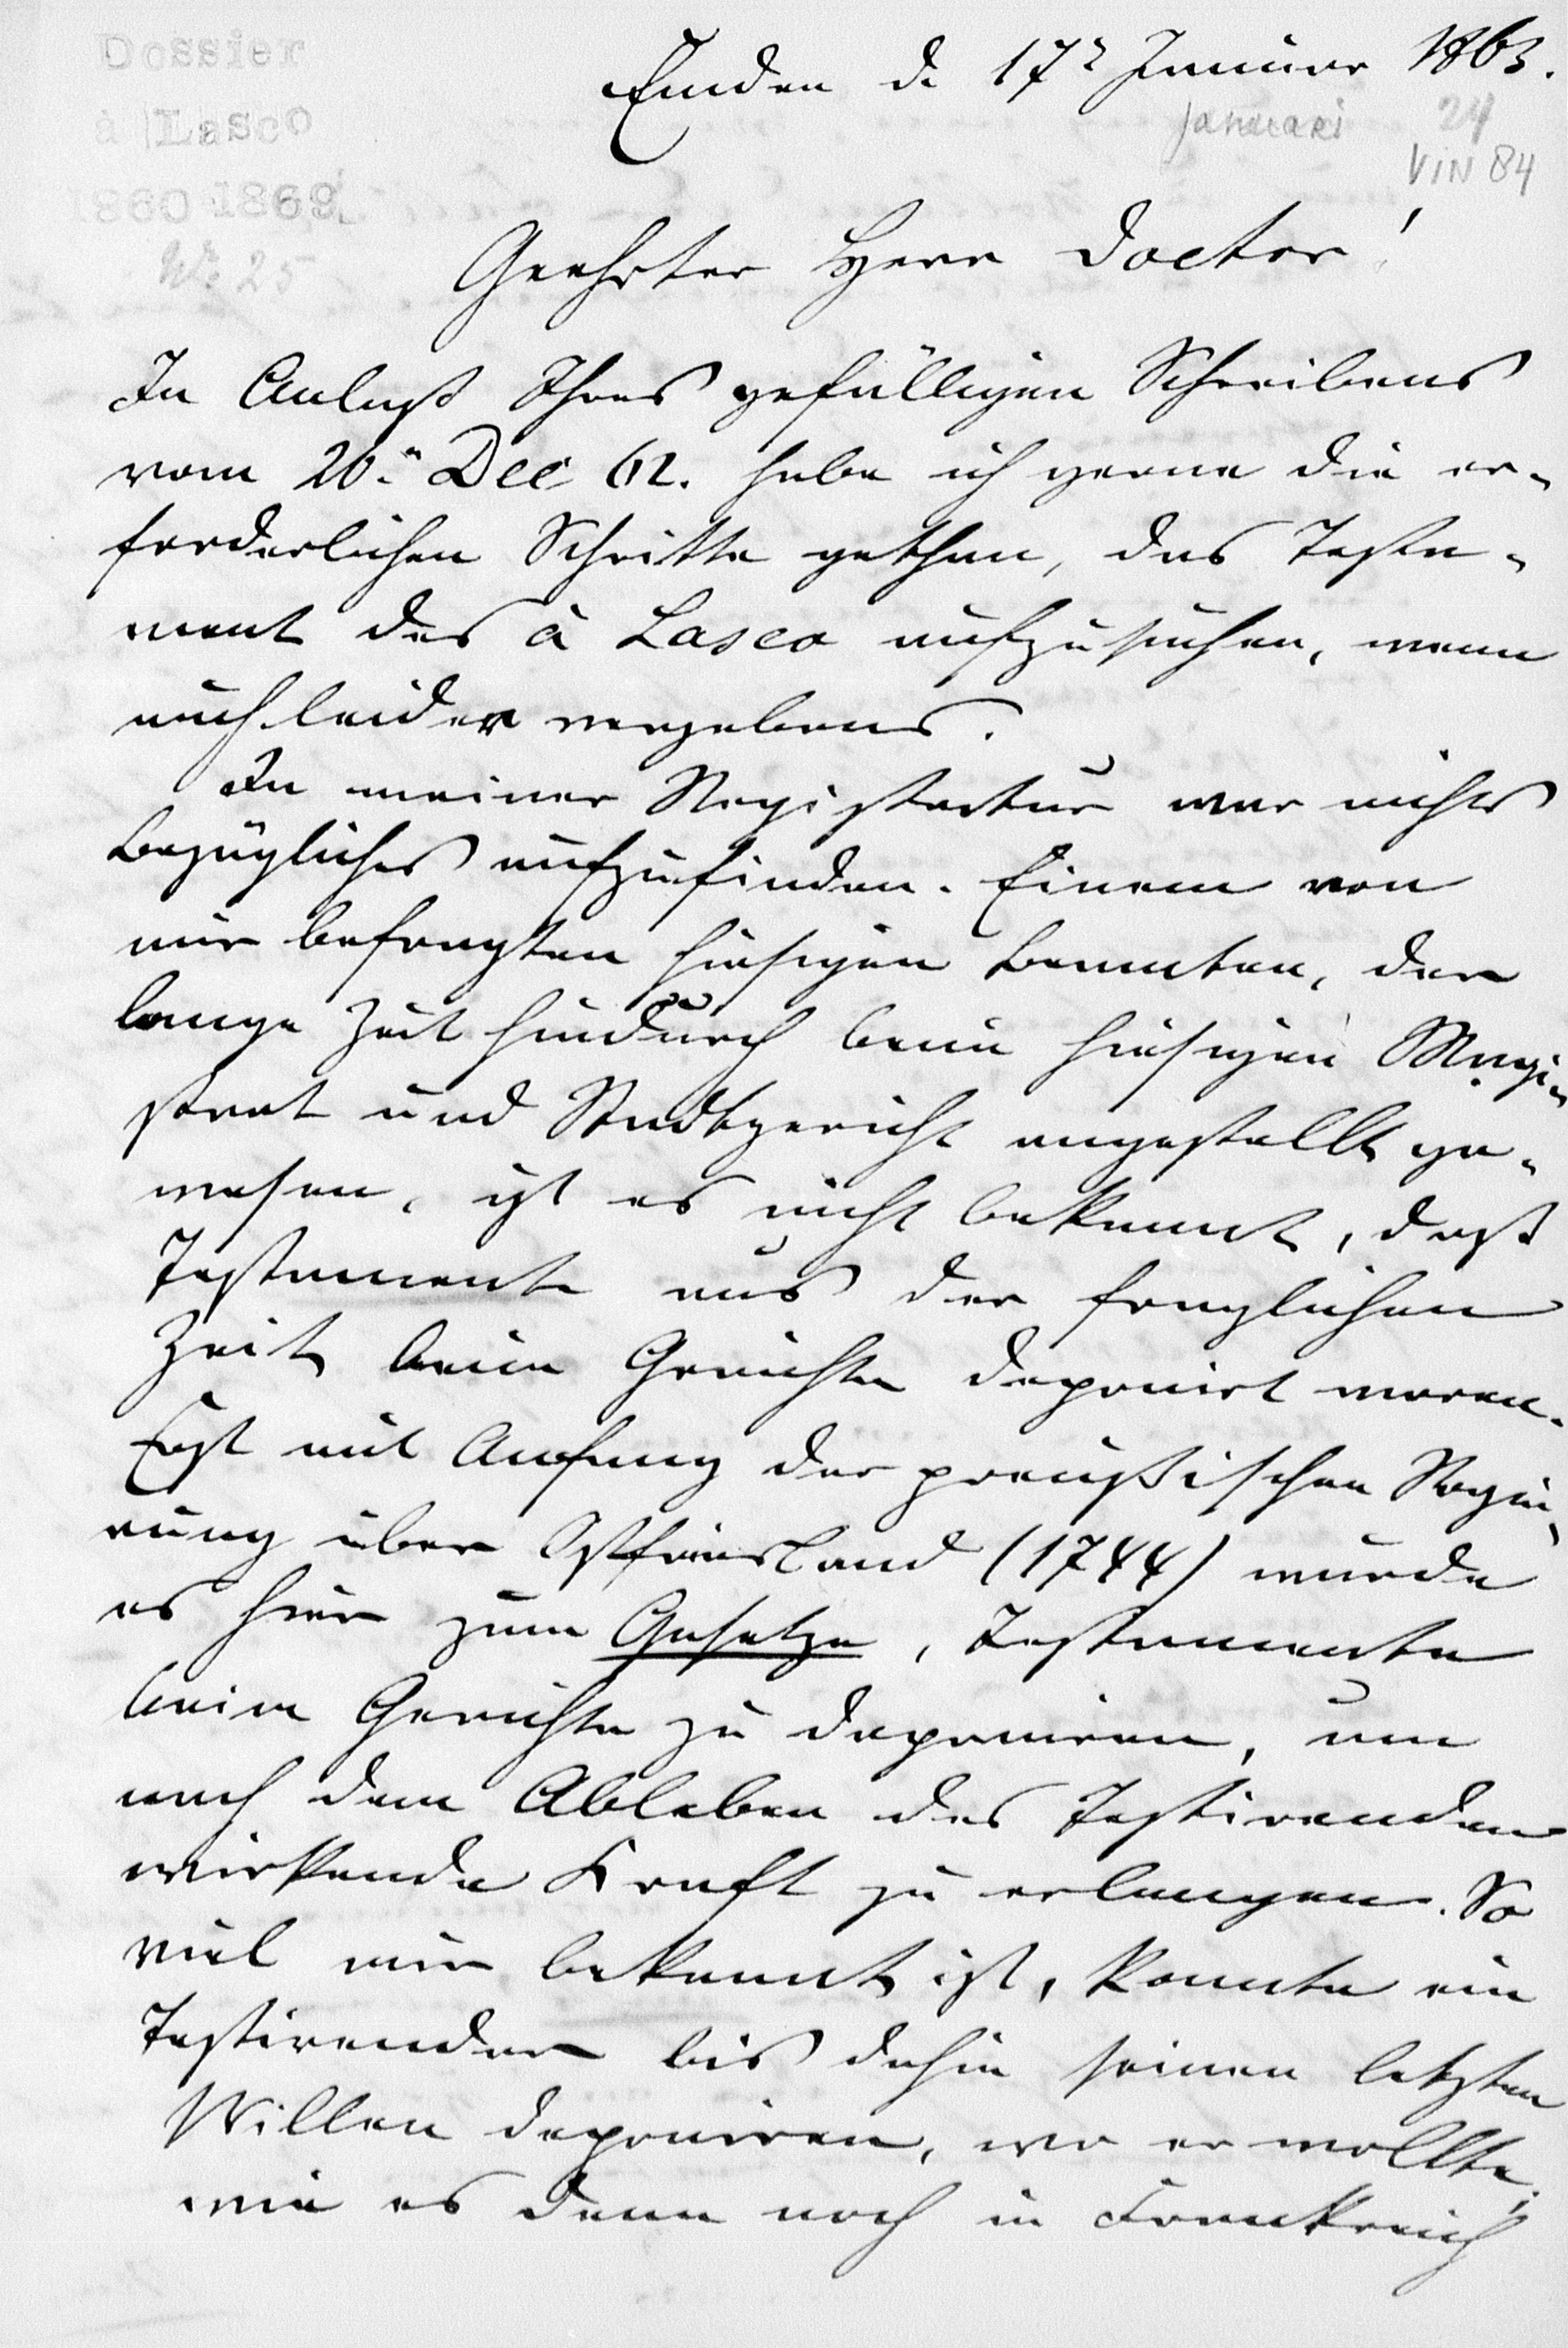 Dossier
à Lasco
1860-1869
No 25
Emden d. 17t Januar 1863.
Januari 24
VIN 84
Geehrter Herr Doctor!
In Anlaß Ihres gefälligen Schreibens
vom 20n Dec 62. habe ich gerne die er-
forderlichen Schritte gethan, das Testa-
ment des à Lasco aufzusuchen, wenn
auch leider vergebens.
In meiner Registratur war nichts
bezügliches aufzufinden. Einem von
mir befragten hiesigen Beamten, der
lange Zeit hindurch beim hiesigen Magi-
strat und Stadtgericht angestellt ge-
wesen, ist es nicht bekannt, daß
Testamente aus der fraglichen
Zeit beim Gerichte deponirt waren.
Erst mit Anfang der preußischen Regie-
rung über Ostfriesland (1744) wurde
es hier zum Gesetze, Testamente
beim Gerichte zu deponiren, um
nach dem Ableben des Testirenden
wirkende Kraft zu erlangen. So
viel mir bekannt ist, konnte ein
Testirender bis dahin seinen letzten
Willen deponiren, wo er wollte,
wie es denn noch in Frankreich